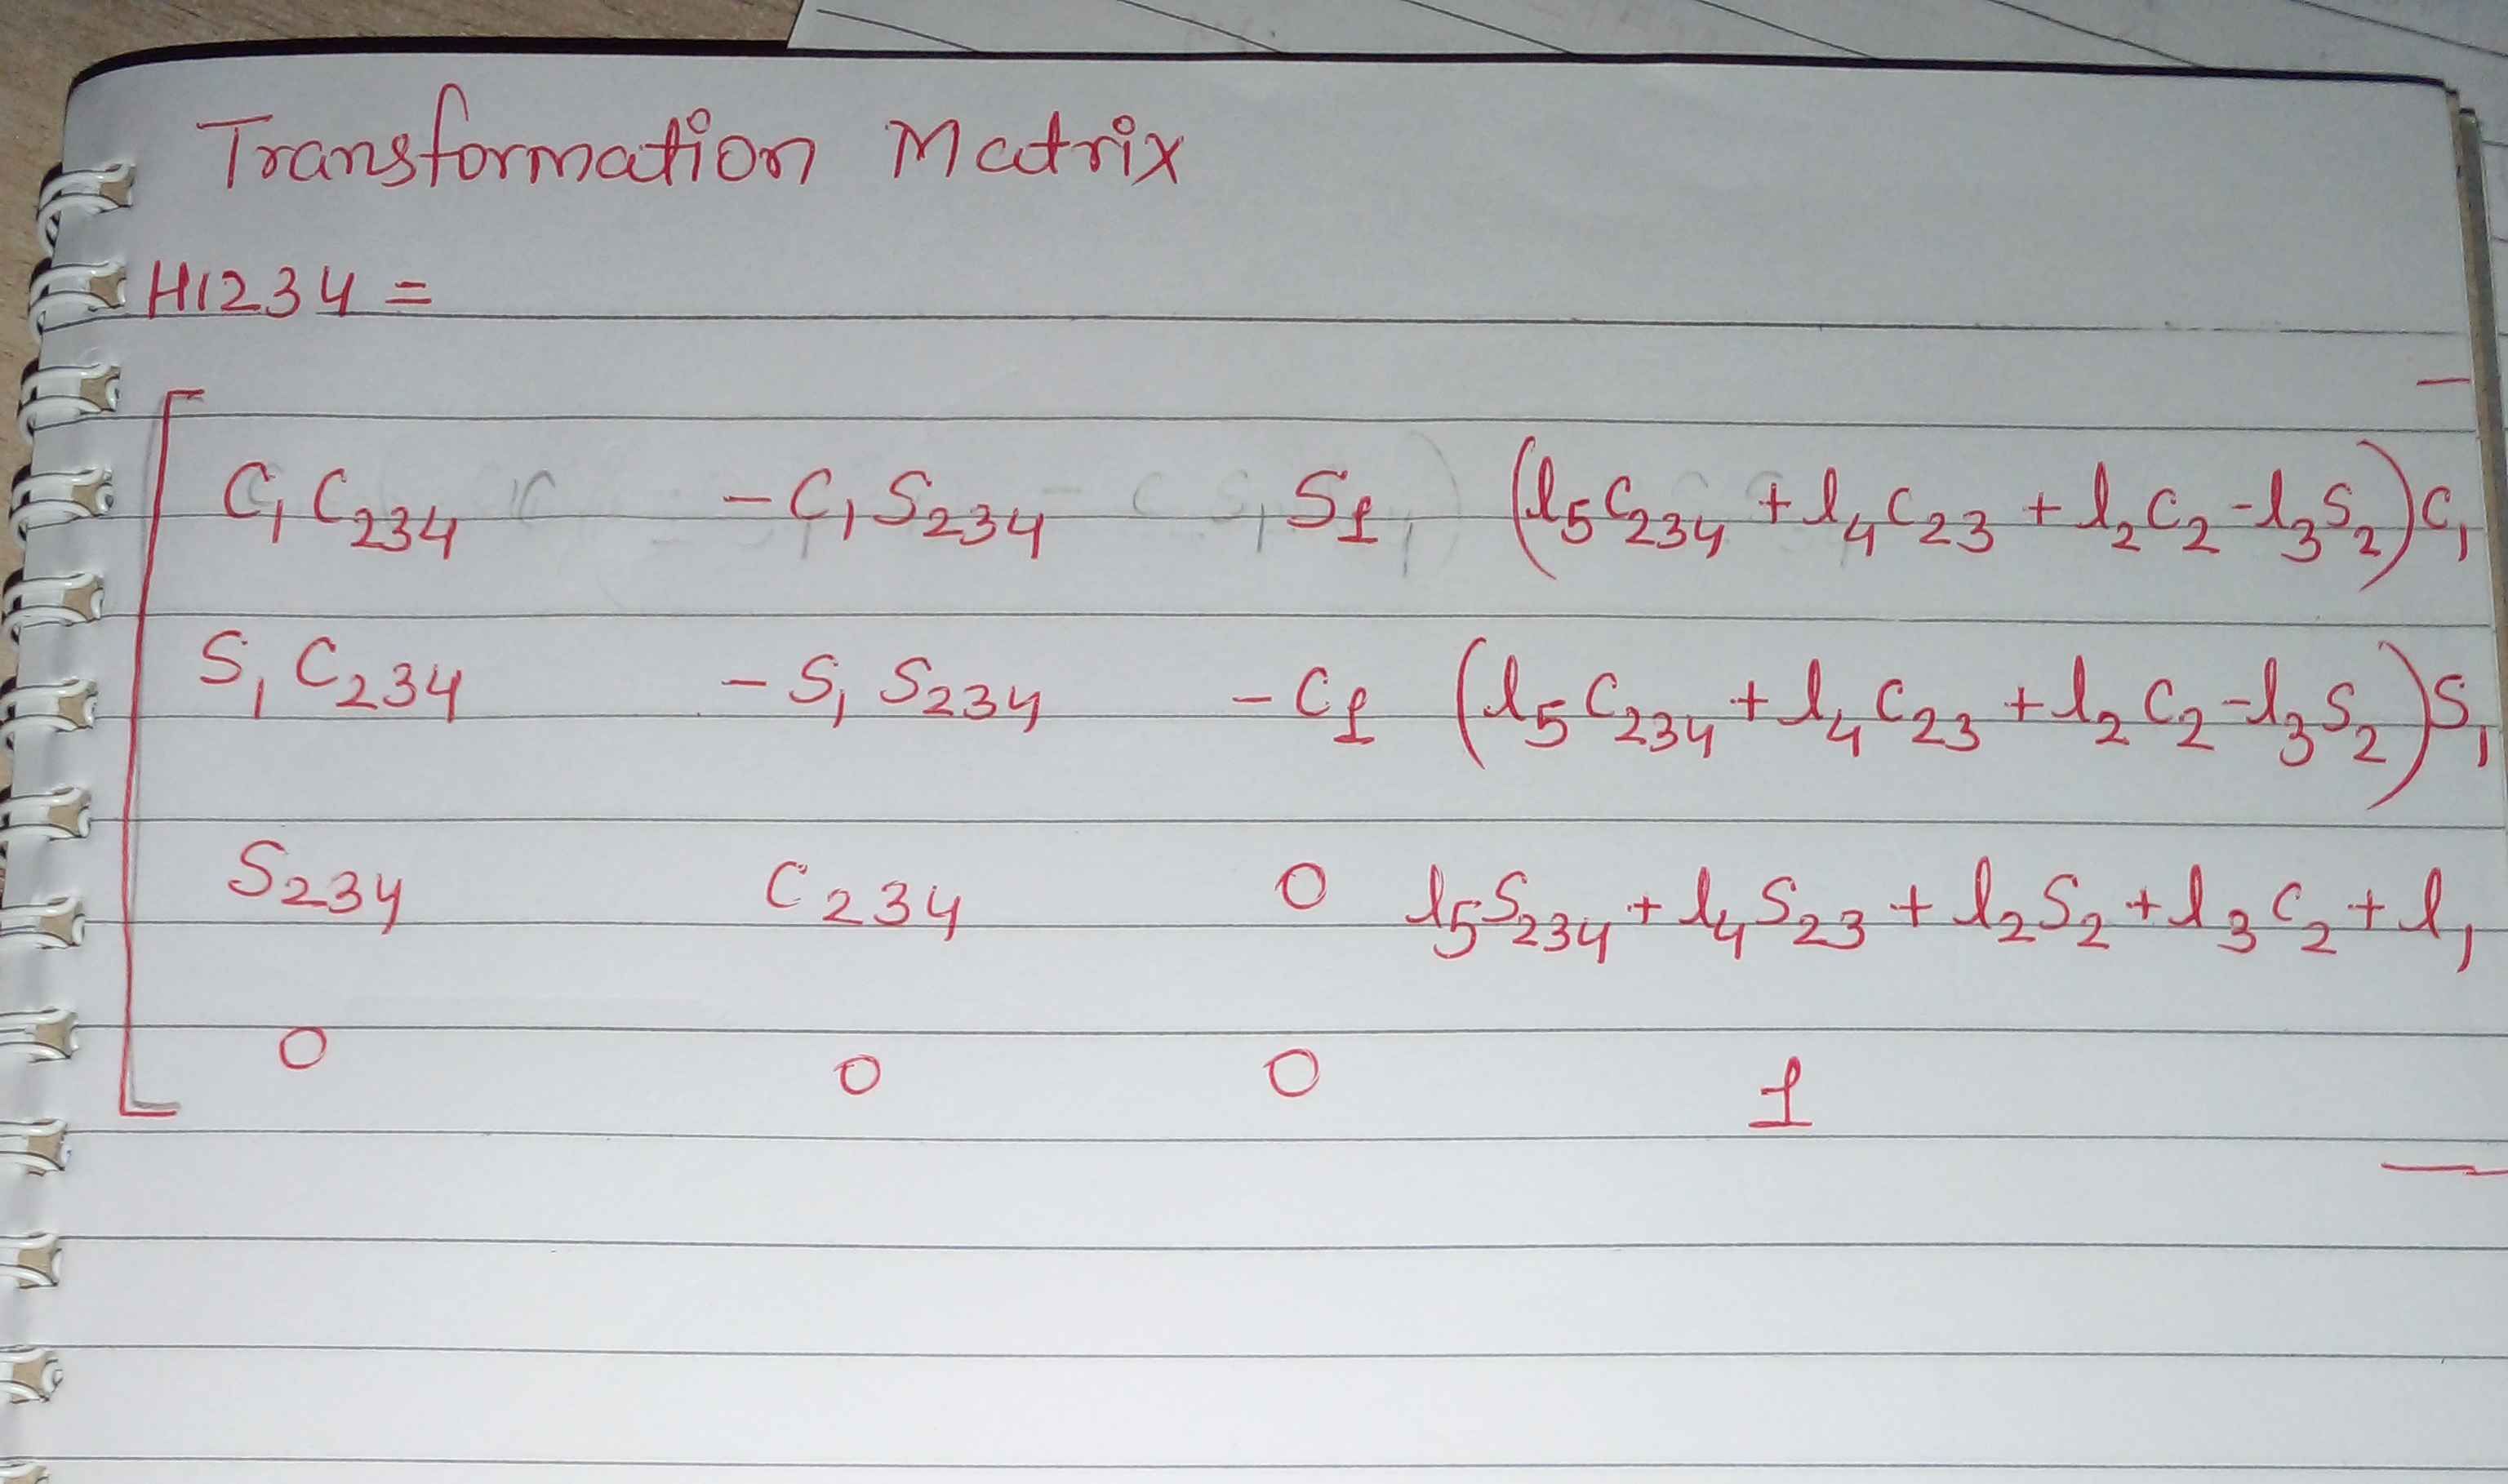 Transformation Matrix
H1234 =
C₁C₂₃₄ -C₁S₂₃₄ S₁ (l₅C₂₃₄ + l₄C₂₃ + l₂C₂ - l₃S₂)C₁
S₁C₂₃₄ -S₁S₂₃₄ -C₁ (l₅C₂₃₄ + l₄C₂₃ + l₂C₂ - l₃S₂)S₁
S₂₃₄ C₂₃₄ 0 l₅S₂₃₄ + l₄S₂₃ + l₂S₂ + l₃C₂ + l₁
0 0 0 1